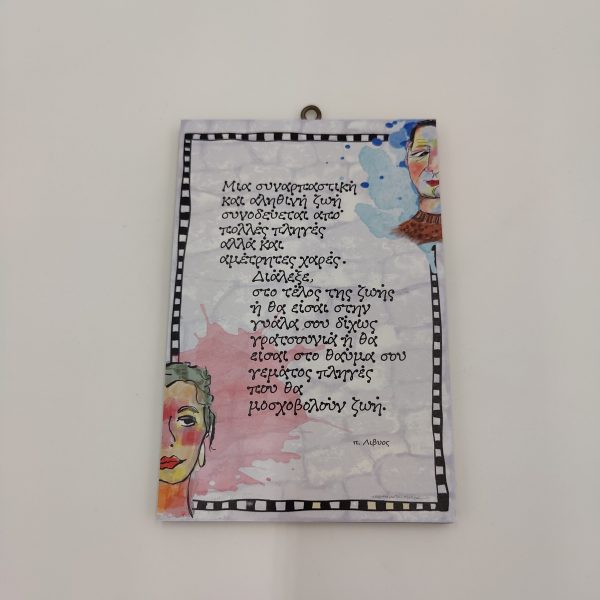 Μια συναρπαστική
και αληθινή ζωή
συνοδεύεται από
πολλές πληγές
αλλά και
αμέτρητες χαρές.
Διάλεξε,
στο τέλος της ζωής
ή θα είσαι στην
γυάλα σου δίχως
γρατσουνιά ή θα
είσαι στο θαύμα σου
γεμάτος πληγές
που θα
μοσχοβολούν ζωή.
π. Λίβυος